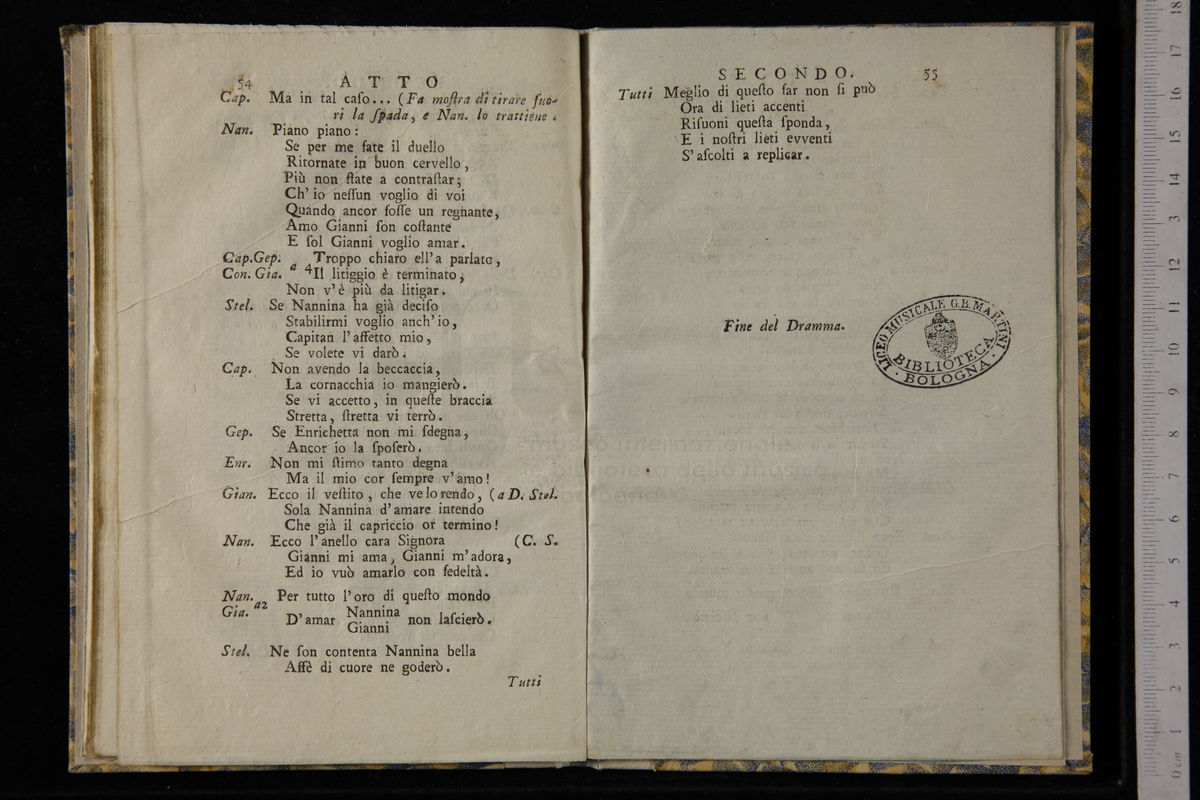 54 ATTO
Cap. Ma in tal caſo... (Fa moſtra di tirare fuo-
ri la ſpada, e Nan. lo trattiene.
Nan. Piano piano:
Se per me fate il duello
Ritornate in buon cervello,
Più non ſtate a contraſtar;
Ch' io neſſun voglio di voi
Quando ancor foſſe un regnante,
Amo Gianni ſon coſtante
E ſol Gianni voglio amar.
Cap. Gep. Troppo chiaro ell'a parlato,
Con. Gia. a 4 Il litiggio è terminato,
Non v'è più da litigar.
Stel. Se Nannina ha già deciſo
Stabilirmi voglio anch'io,
Capitan l'affetto mio,
Se volete vi darò.
Cap. Non avendo la beccaccia,
La cornacchia io mangierò.
Se vi accetto, in queſte braccia
Stretta, ſtretta vi terrò.
Gep. Se Enrichetta non mi ſdegna,
Ancor io la ſpoſerò.
Enr. Non mi ſtimo tanto degna
Ma il mio cor ſempre v'amo!
Gian. Ecco il veſtito, che ve lo rendo, (a D. Stel.
Sola Nannina d'amare intendo
Che già il capriccio or termino!
Nan. Ecco l'anello cara Signora (C. S.
Gianni mi ama, Gianni m'adora,
Ed io vuò amarlo con fedeltà.
Nan. Per tutto l'oro di queſto mondo
Gia. a2 D'amar Nannina non laſcierò.
Gianni
Stel. Ne ſon contenta Nannina bella
Affè di cuore ne goderò.
Tutti
SECONDO. 55
Tutti Meglio di queſto far non ſi può
Ora di lieti accenti
Riſuoni queſta ſponda,
E i noſtri lieti evventi
S'aſcolti a replicar.
Fine del Dramma.
LICEO MUSICALE G.B. MARTINI
BIBLIOTECA
· BOLOGNA ·
museo internazionale
e biblioteca della musica
bologna
0 cm 1 2 3 4 5 6 7 8 9 10 11 12 13 14 15 16 17 18